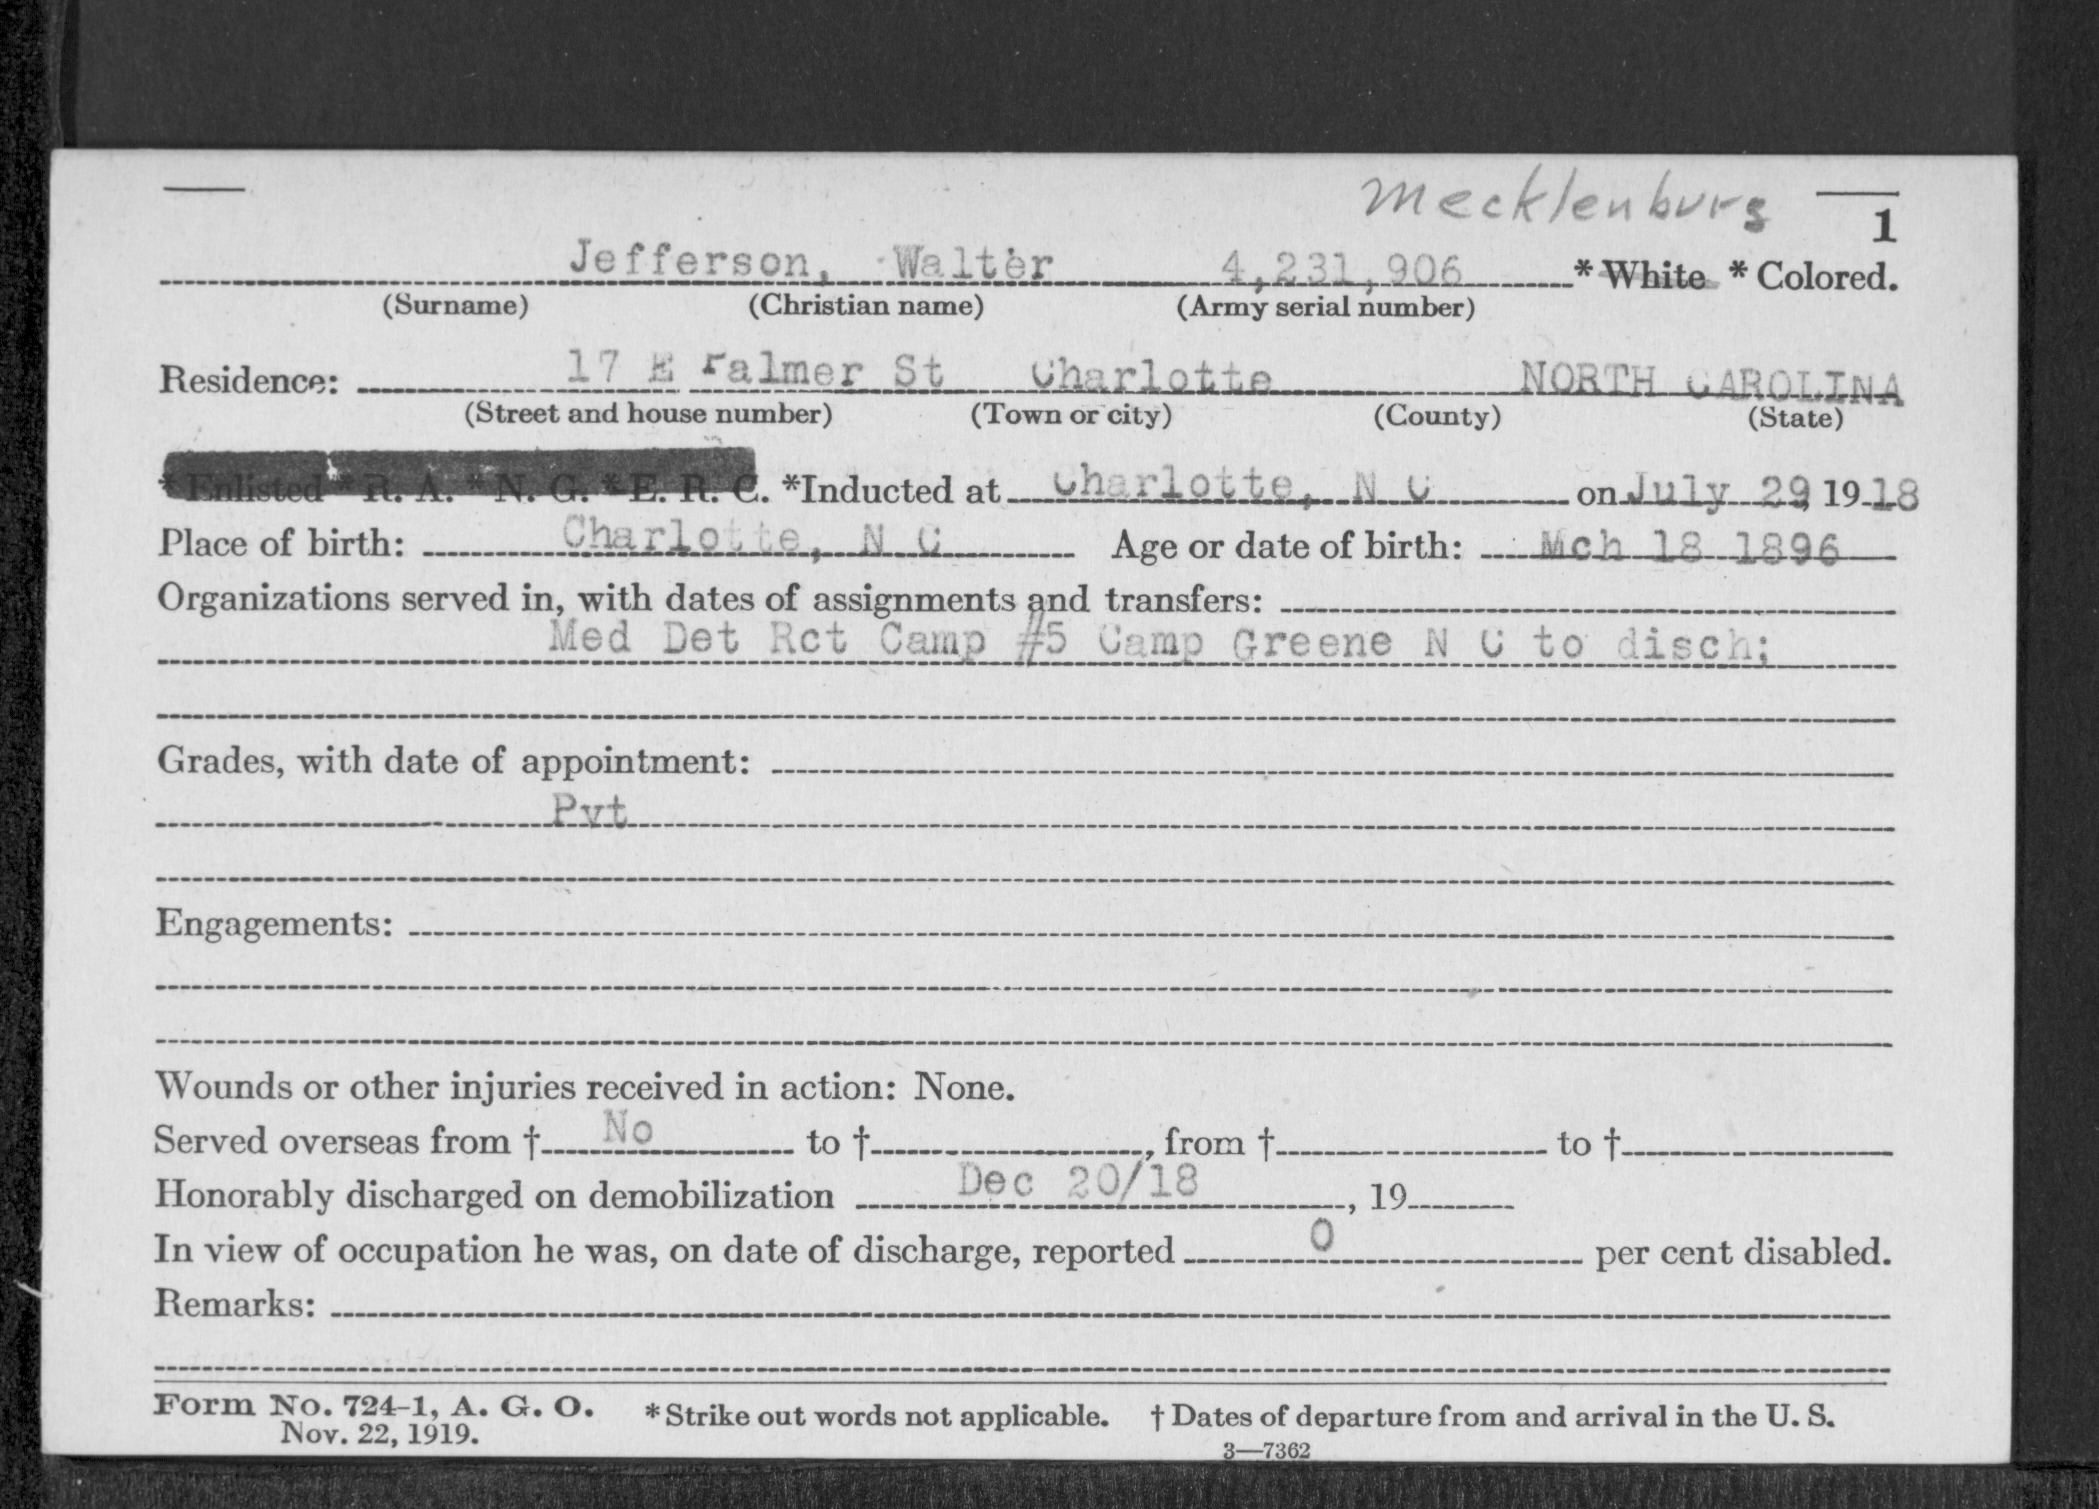 Mecklenburg
1
Jefferson, Walter 4,231,906 * White * Colored.
(Surname) (Christian name) (Army serial number)
Residence: 17 E Palmer St Charlotte NORTH CAROLINA
(Street and house number) (Town or city) (County) (State)
* Enlisted * R. A. * N. G. * E. R. C. *Inducted at Charlotte, N C on July 29, 1918
Place of birth: Charlotte, N C Age or date of birth: Mch 18 1896
Organizations served in, with dates of assignments and transfers:
Med Det Rct Camp #5 Camp Greene N C to disch;
Grades, with date of appointment:
Pvt
Engagements:
Wounds or other injuries received in action: None.
Served overseas from † No to † , from † to †
Honorably discharged on demobilization Dec 20/18 , 19
In view of occupation he was, on date of discharge, reported 0 per cent disabled.
Remarks:
Form No. 724-1, A. G. O. * Strike out words not applicable. † Dates of departure from and arrival in the U. S.
Nov. 22, 1919.
3—7362